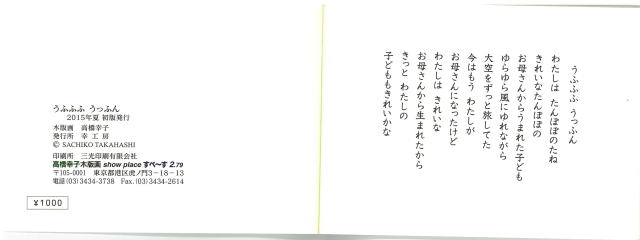 うふふふ うっふん
2015年夏 初版発行
木版画　高橋幸子
発行所　幸 工 房
© SACHIKO TAKAHASHI
印刷所　三光印刷有限会社
高橋幸子木版画 show place すぺーす 2.79
〒105-0001　東京都港区虎ノ門3-18-13
電話(03)3434-3738　Fax.(03)3434-2614
¥1000
うふふふ うっふん
わたしは たんぽぽのたね
きれいなたんぽぽの
お母さんからうまれた子ども
ゆらゆら風にゆれながら
大空をずっと旅してた
今はもう わたしが
お母さんになったけど
わたしは きれいな
お母さんから生まれたから
きっと わたしの
子どももきれいかな